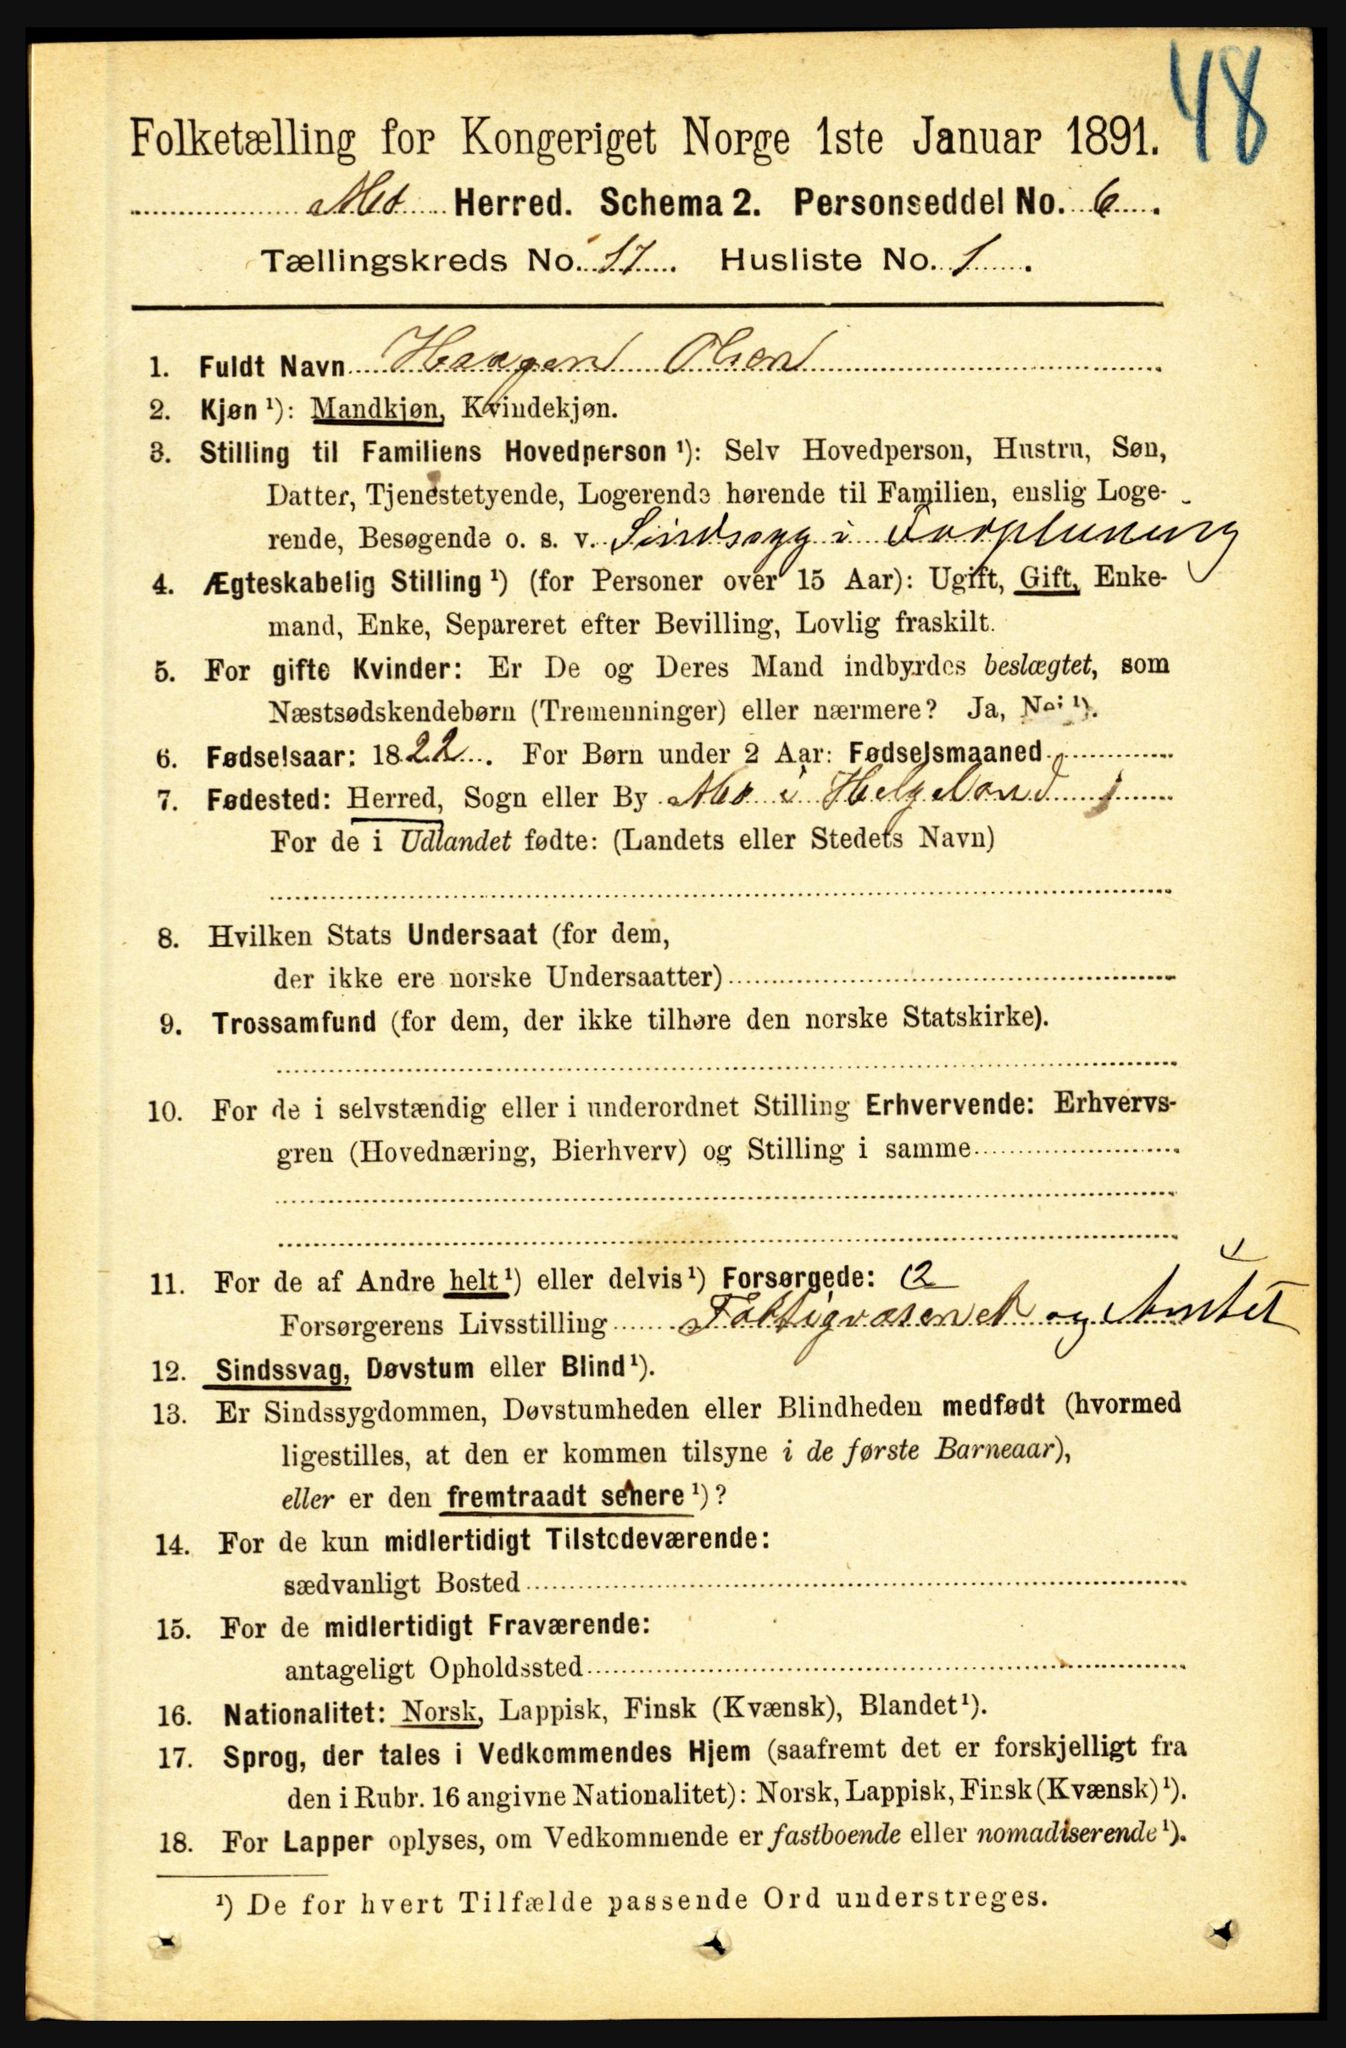 48
Folketælling for Kongeriget Norge 1ste Januar 1891.
Mo Herred. Schema 2. Personseddel No. 6.
Tællingskreds No. 17. Husliste No. 1.
1. Fuldt Navn Haagen Olsen
2. Kjøn ¹): Mandkjøn, Kvindekjøn.
3. Stilling til Familiens Hovedperson ¹): Selv Hovedperson, Hustru, Søn,
Datter, Tjenestetyende, Logerende hørende til Familien, enslig Loge-
rende, Besøgende o. s. v. Sindssyg i Forpleining
4. Ægteskabelig Stilling ¹) (for Personer over 15 Aar): Ugift, Gift, Enke-
mand, Enke, Separeret efter Bevilling, Lovlig fraskilt.
5. For gifte Kvinder: Er De og Deres Mand indbyrdes beslægtet, som
Næstsødskendebørn (Tremenninger) eller nærmere? Ja, Nei ¹).
6. Fødselsaar: 1822. For Børn under 2 Aar: Fødselsmaaned
7. Fødested: Herred, Sogn eller By Mo i Helgeland
For de i Udlandet fødte: (Landets eller Stedets Navn)
8. Hvilken Stats Undersaat (for dem,
der ikke ere norske Undersaatter)
9. Trossamfund (for dem, der ikke tilhøre den norske Statskirke).
10. For de i selvstændig eller i underordnet Stilling Erhvervende: Erhvervs-
gren (Hovednæring, Bierhverv) og Stilling i samme
11. For de af Andre helt ¹) eller delvis ¹) Forsørgede:
Forsørgerens Livsstilling Fattigvæsenet og Amtet
12. Sindssvag, Døvstum eller Blind ¹).
13. Er Sindssygdommen, Døvstumheden eller Blindheden medfødt (hvormed
ligestilles, at den er kommen tilsyne i de første Barneaar),
eller er den fremtraadt senere ¹)?
14. For de kun midlertidigt Tilstedeværende:
sædvanligt Bosted
15. For de midlertidigt Fraværende:
antageligt Opholdssted
16. Nationalitet: Norsk, Lappisk, Finsk (Kvænsk), Blandet ¹).
17. Sprog, der tales i Vedkommendes Hjem (saafremt det er forskjelligt fra
den i Rubr. 16 angivne Nationalitet): Norsk, Lappisk, Finsk (Kvænsk) ¹).
18. For Lapper oplyses, om Vedkommende er fastboende eller nomadiserende ¹).
¹) De for hvert Tilfælde passende Ord understreges.